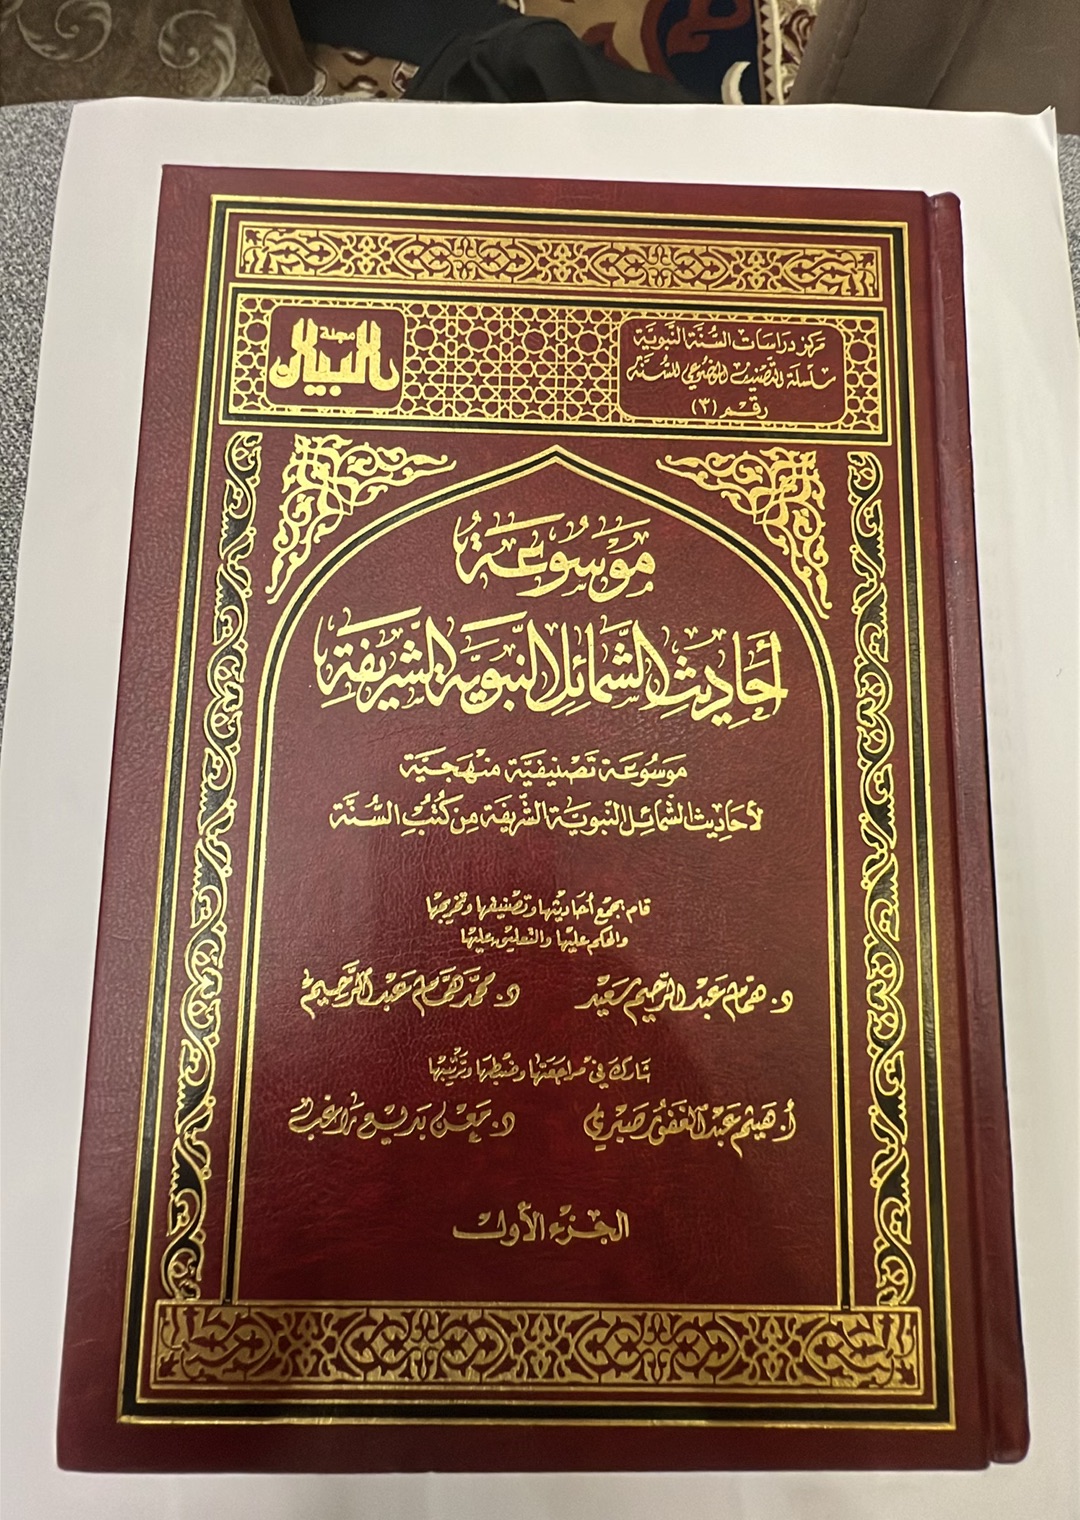 مركز دراسات السنة النبوية
سلسلة التصنيف الموضوعي للسنة
رقم (٣)
مجلة
البيان
موسوعة
أحاديث الشمائل النبوية الشريفة
موسوعة تصنيفية منهجية
لأحاديث الشمائل النبوية الشريفة من كتب السنة
قام بجمع أحاديثها وتصنيفها وتخريجها
والحكم عليها والتعليق عليها
د. همام عبد الرحيم سعيد د. محمد همام عبد الرحيم
شارك في مراجعتها وضبطها وترتيبها
أ. هيثم عبد الغفور صبري د. معن بديع راغب
الجزء الأول